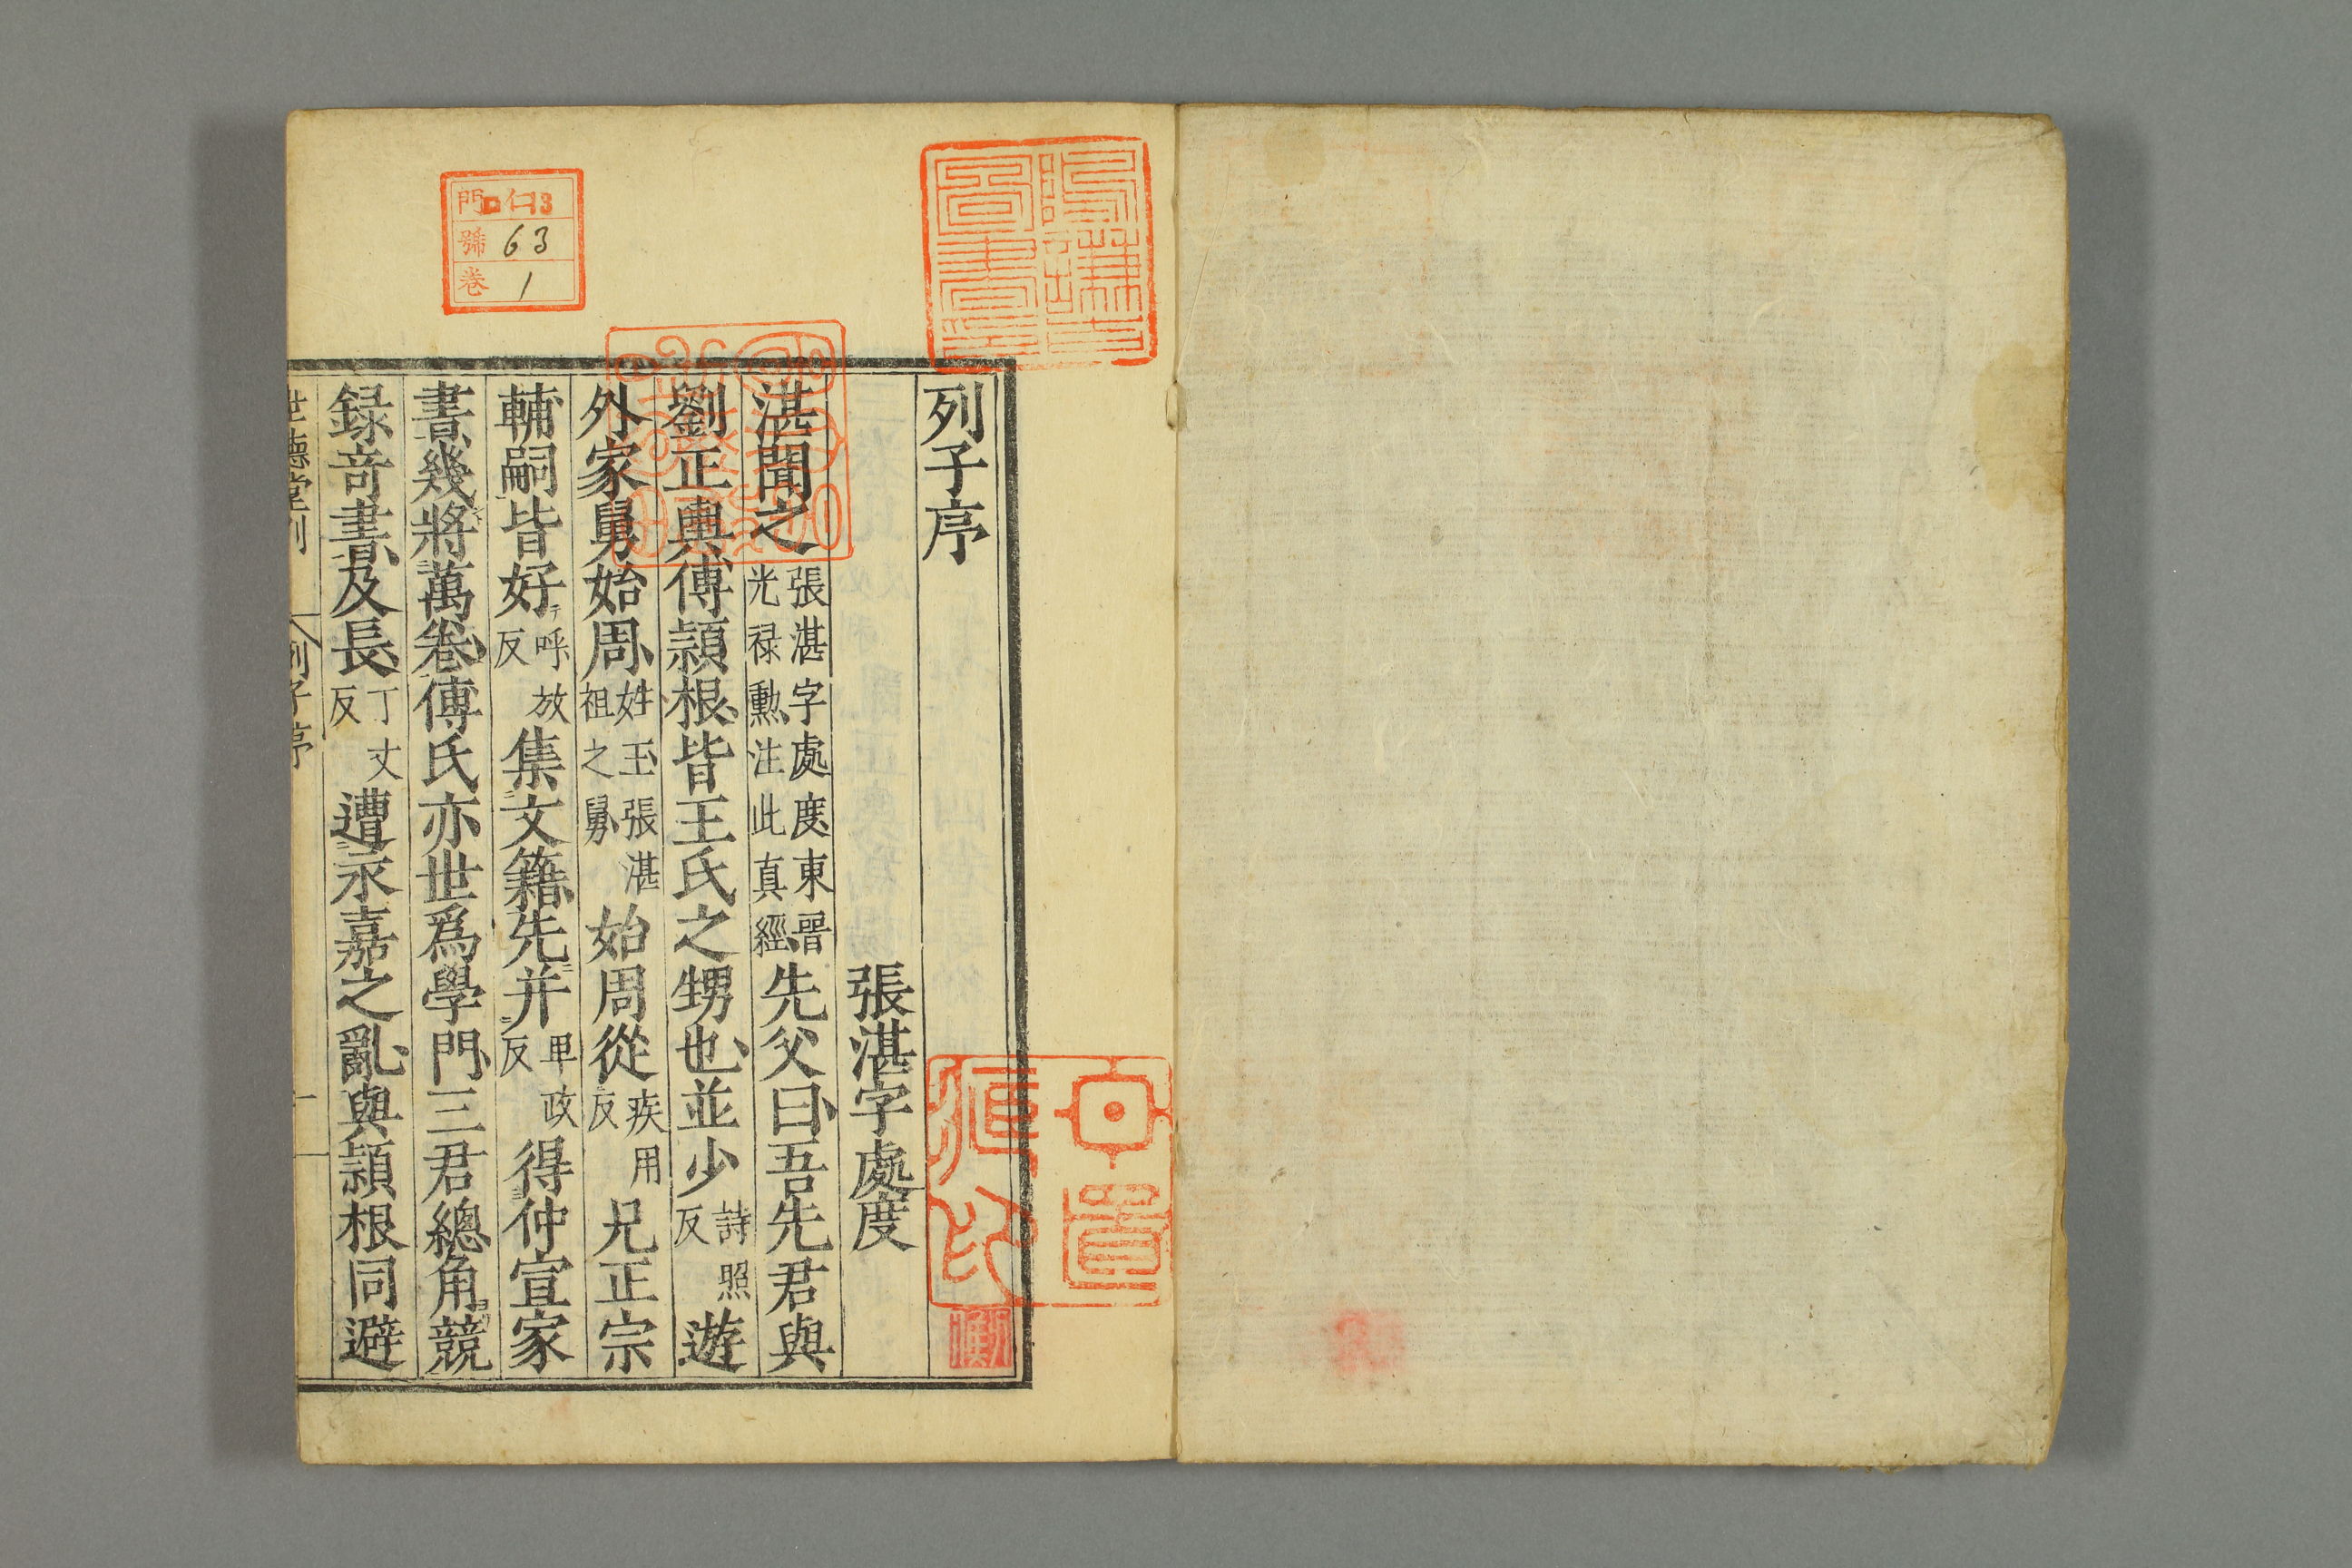 列子序
張湛字處度
湛聞之張湛字處度東晉光禄勳注此真經先父曰吾先君與
劉正輿傅頴根皆王氏之甥也並少詩照反遊
外家舅始周姓王張湛祖之舅始周從疾用反兄正宗
輔嗣皆好呼放反集文籍先并畀政反得仲宣家
書幾將萬卷傅氏亦世爲學門三君總角競
録竒書及長丁丈反遭永嘉之亂與頴根同避
世德堂刊
列子序
一
門 仁3
號 63
卷 1